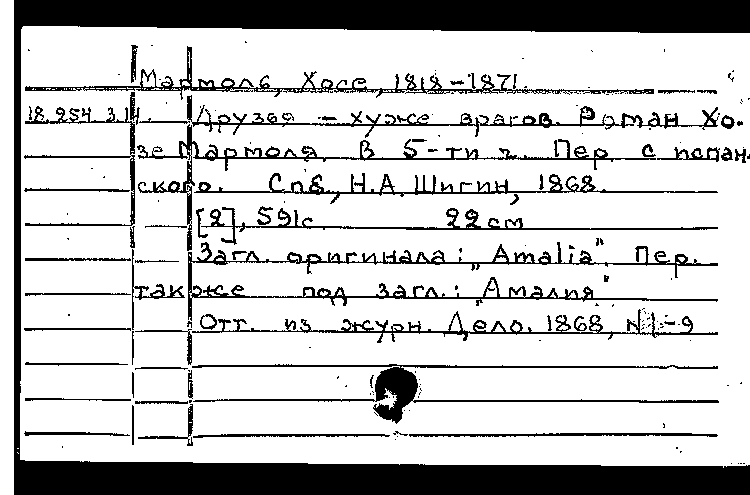 Мармоль, Хосе, 1818-1871.
18.254.3.14. Друзья - хуже врагов. Роман Хо-
зе Мармоля. В 5-ти ч. Пер. с испан-
ского. Спб., Н.А. Шигин, 1868.
[2], 591с 22 см
Загл. оригинала: „Amalia". Пер.
также под загл.: „Амалия"
Отт. из журн. Дело. 1868, №1-9